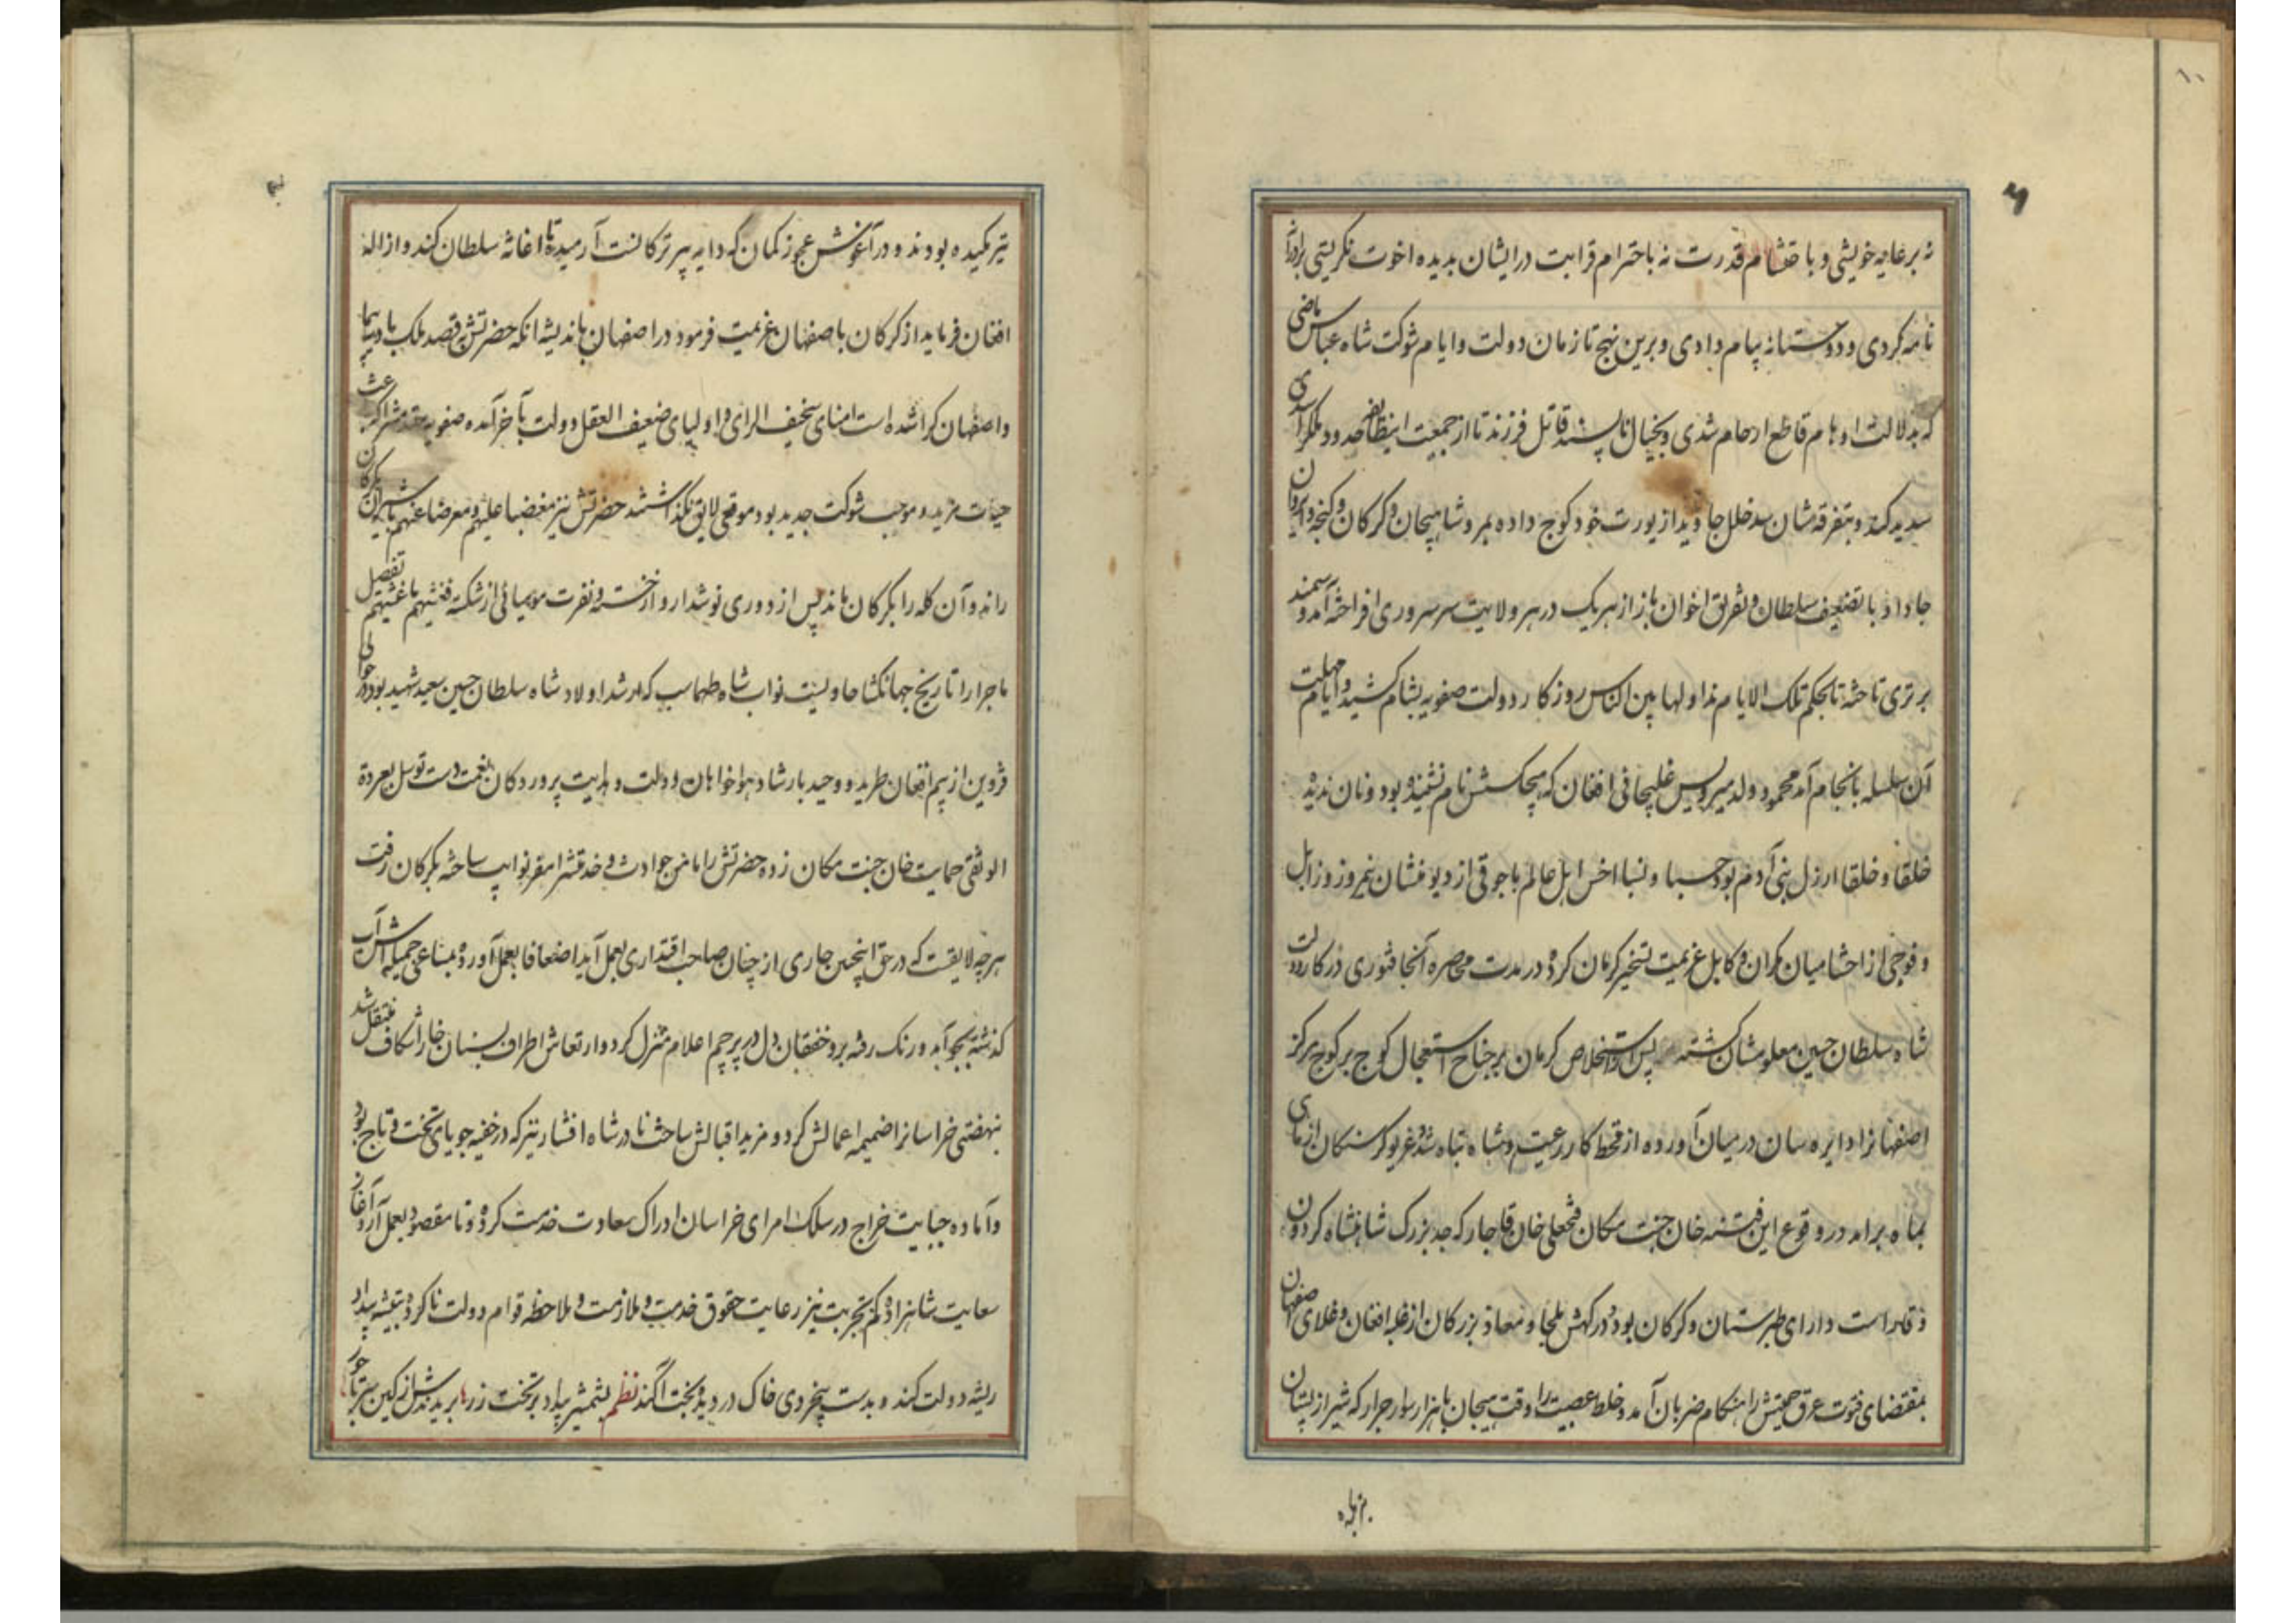 ۱۰
نه برعایه خویشی و باحتشام قدرت نه باحترام قرابت در ایشان بدیده اخوت نگریستی برادرانه
نامه کردی و دوستانه پیام دادی و برین نهج تا زمان دولت و ایام شوکت شاه عباس ماضی
که بدلالت اوهام قاطع ارحام شدی و بخیال ناپسند قاتل فرزند تا از جمعیت اینطایفه حدود ملک را سدی
سدید کند و بتفرقه شان سد خلل جاوید از یورت خود کوچ داده بمرو شاهیجان و کرکان و کنجه و ایروان
جا داد با تضعیف سلطان و تفریق اخوان باز از هریک در هر ولایت سر سروری افراخته آمد و سمند
برتری تاخته تا بحکم تلک الایام نداولها بین الناس روزکار دولت صفویه بشام کشید و ایام مهلت
آن سلسله بانجام آمد محمود ولد میرویس غلیجائی افغان که هیچکسش نام نشنیده بود و نان ندیده
خلقا و خلقا ارذل بنی آدم بود حسبا و نسبا اخس اهل عالم با جوقی از دیو منشان نیمروز و زابل
و فوجی از احشامیان مکران و کابل عزیمت تسخیر کرمان کرده در مدت محاصره آنجا فتوری در کار دولت
شاه سلطان حسین معلومشان کشته پس از استخلاص کرمان بر جناح استعجال کوچ بر کوچ مرکز
اصفهانرا دایره سان در میان آورده از قحط کار رعیت و شاه تباه شد و غریو کرسنکان از ماهی
بماه برامد در وقوع این فتنه خان جنت مکان فتحعلی خان قاجار که جد بزرک شاهنشاه کردون
وقار است دارای طبرستان و کرکان بود و درکهش ملجا و معاذ بزرکان از غلبه افغان و غلای اصفهان
بمقتضای فتوت عرق حمیتش را هنکام ضربان آمد و خلط عصبیت را وقت هیجان با هزار سوار جرار که شیر از پستان
تیر مکیده بودند و در آغوش عجوز کمان که دایه پیر ترکانست آرمیده تا اغاثه سلطان کند و ازاله
افغان فرماید از کرکان باصفهان عزیمت فرمود در اصفهان باندیشه انکه حضرتش قصد ملک با
واصفهان کرا شده است امنای سخیف الرای و اولیای ضعیف العقل دولت بآخر آمده صفویه
حیات مزید و موجب شوکت جدید بود موقعی لایق نکذاشتند حضرتش نیز مغضبا علیهم و معرضا عنهم
راند و آن کله را بکرکان ماند پس از دوری نوشدارو از خسته و نفرت مومیائی از شکسته فغشیهم ما غشیهم تفصیل
ماجرا را تاریخ جهانکشا حاویست نواب شاه طهماسب که ارشد اولاد شاه سلطان حسین سعید شهید بود در حوالی
قزوین از بیم افغان طرید و وحید بارشاد هواخواهان دولت و هدایت پروردکان نعمت دست توسل بعروة
الوثقی حمایت خان جنت مکان زده حضرتش را مامن حوادث و خدمتشرا مقر نوایب ساخته بکرکان رفت
هر چه لایقست که در حق اینچنین جاری از چنان صاحب اقتداری بعمل آید اضعافا بعمل آورده بمساعی جمیله اش آب
کذشته بجو آمد و رنک رفته برو خفقان دل در پرچم اعلام منزل کرد و ارتعاش اطراف بسنان خاراشکاف منتقل شد
بنهضتی خراسانرا ضمیمه اعمالش کرد و مزید اقبالش ساخت نادر شاه افشار نیز که در خفیه جویای تخت و تاج بود
و آماده جبایت خراج در سلک امرای خراسان ادراک سعادت خدمت کرده و تا مقصود بعمل آرد آغاز
سعایت شاهزاده کم تجربت نیز رعایت حقوق خدمت و ملازمت و ملاحظه قوام دولت ناکرده بتیشه بیداد
ریشه دولت کند و بدست بیخردی خاک در دیده بخت آکند نظم بشمشیر بیداد بر تخت زر برید